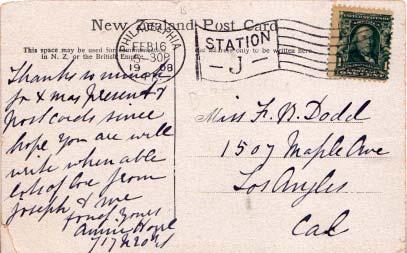 New Zealand Post Card
This space may be used for
in N. Z. or the British Empire
only to be written here.
PHILADELPHIA
FEB 16
5 30P
1908
STATION
J
Thanks so much
for Xmas Present &
Post Cards since
hope you are will
write when able
lots of love from
Joseph & me
fond yours
Annie
717 N 20th St
Miss F. B. Dodd
1507 Maple Ave
Los Angles
Cal